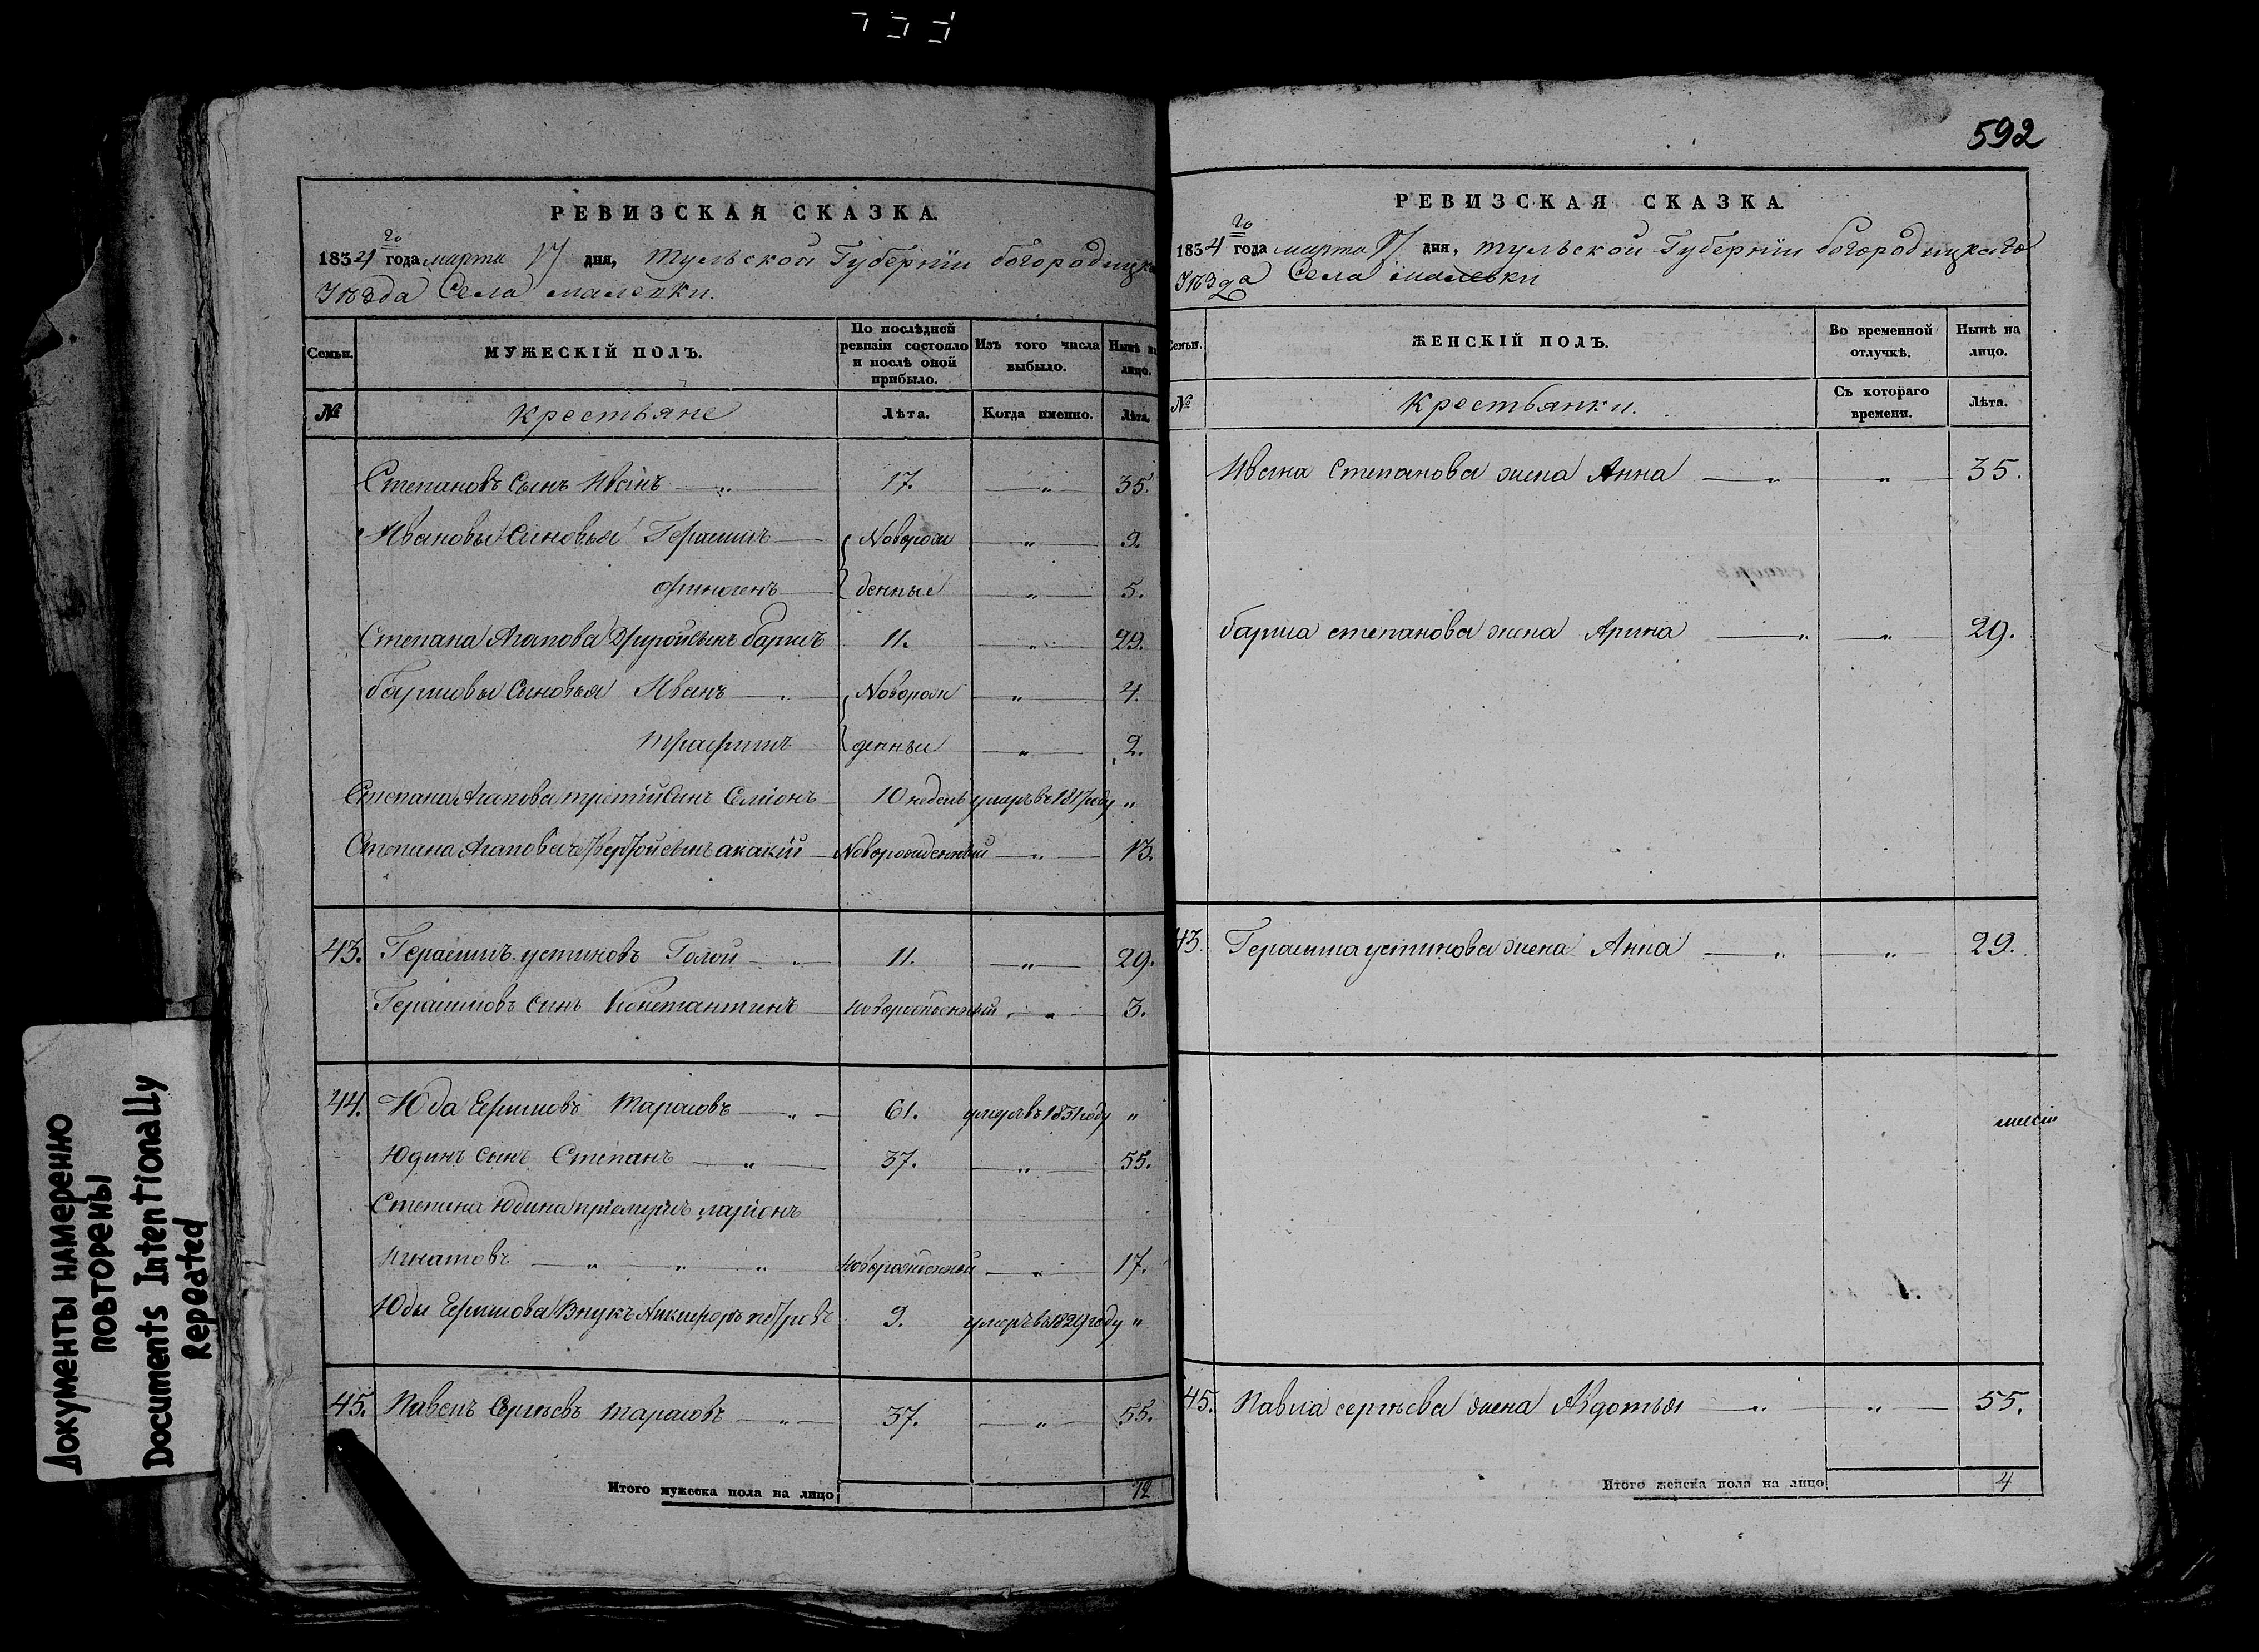 592
РЕВИЗСКАЯ СКАЗКА.
1834 го года марта 17 дня, Тульской Губернiи богородицка
Уѣзда Села малевки.
Семьи.
МУЖЕСКІЙ ПОЛЪ.
По послѣдней ревизіи состояло и послѣ оной прибыло.
Изъ того числа выбыло.
Нынѣ на лицо.
№
Крестьяне
Лѣта.
Когда именно.
Лѣта.
Степановъ Сынъ Иванъ — „ — 17. — „ — 35.
Ивановы Сыновья Герасимъ — Новорож — „ — 9.
Финогенъ — денные — „ — 5.
Степана Агапова Другойсынъ барисъ 11. — „ — 29.
барисовы Сыновья Иванъ — „ Новорож — „ — 4.
Трафимъ денныи — „ — 2.
Степана Агапова третійсынъ Семіонъ 10 недель умеръ въ 1817 году „
Степана Агапова четвертойсынъ акакій — Новорожденный — „ — 13.
43. Герасимъ устиновъ Голой — „ — 11. — „ — 29.
Герасимовъ Сынъ Константинъ новорожденный — „ — 3.
44. Юда Ефимовъ Тарасовъ — „ — 61. умеръ въ 1831 году „
Юдинъ сынъ Степанъ — „ — 37. — „ — 55.
Степана Юдина пріемышъ ларіонъ
Игнатовъ — „ „ „ новорожденной — „ — 17.
Юды Ефимова Внукъ Никифоръ петровъ 9. умеръ въ 1829 году „
45. Павелъ Сергѣевъ Тарасовъ — „ — 37. — „ — 55.
Итого мужеска пола на лицо 12
РЕВИЗСКАЯ СКАЗКА.
1834 го года марта 17 дня, Тульской Губернiи богородицкаго
Уѣзда Села малевки
Семьи.
ЖЕНСКІЙ ПОЛЪ.
Во временной отлучкѣ.
Нынѣ на лицо.
№
Крестьянки.
Съ котораго времени.
Лѣта.
Ивана Степанова жена Анна — „ — „ — 35.
бариса степанова жена Арина — „ — „ — 29.
43. Герасима устинова жена Анна — „ — „ — 29.
45. Павла сергѣева жена Авдотья „ — „ — 55.
Итого женска пола на лицо 4
Документы намеренно
повторены
Documents Intentionally
Repeated